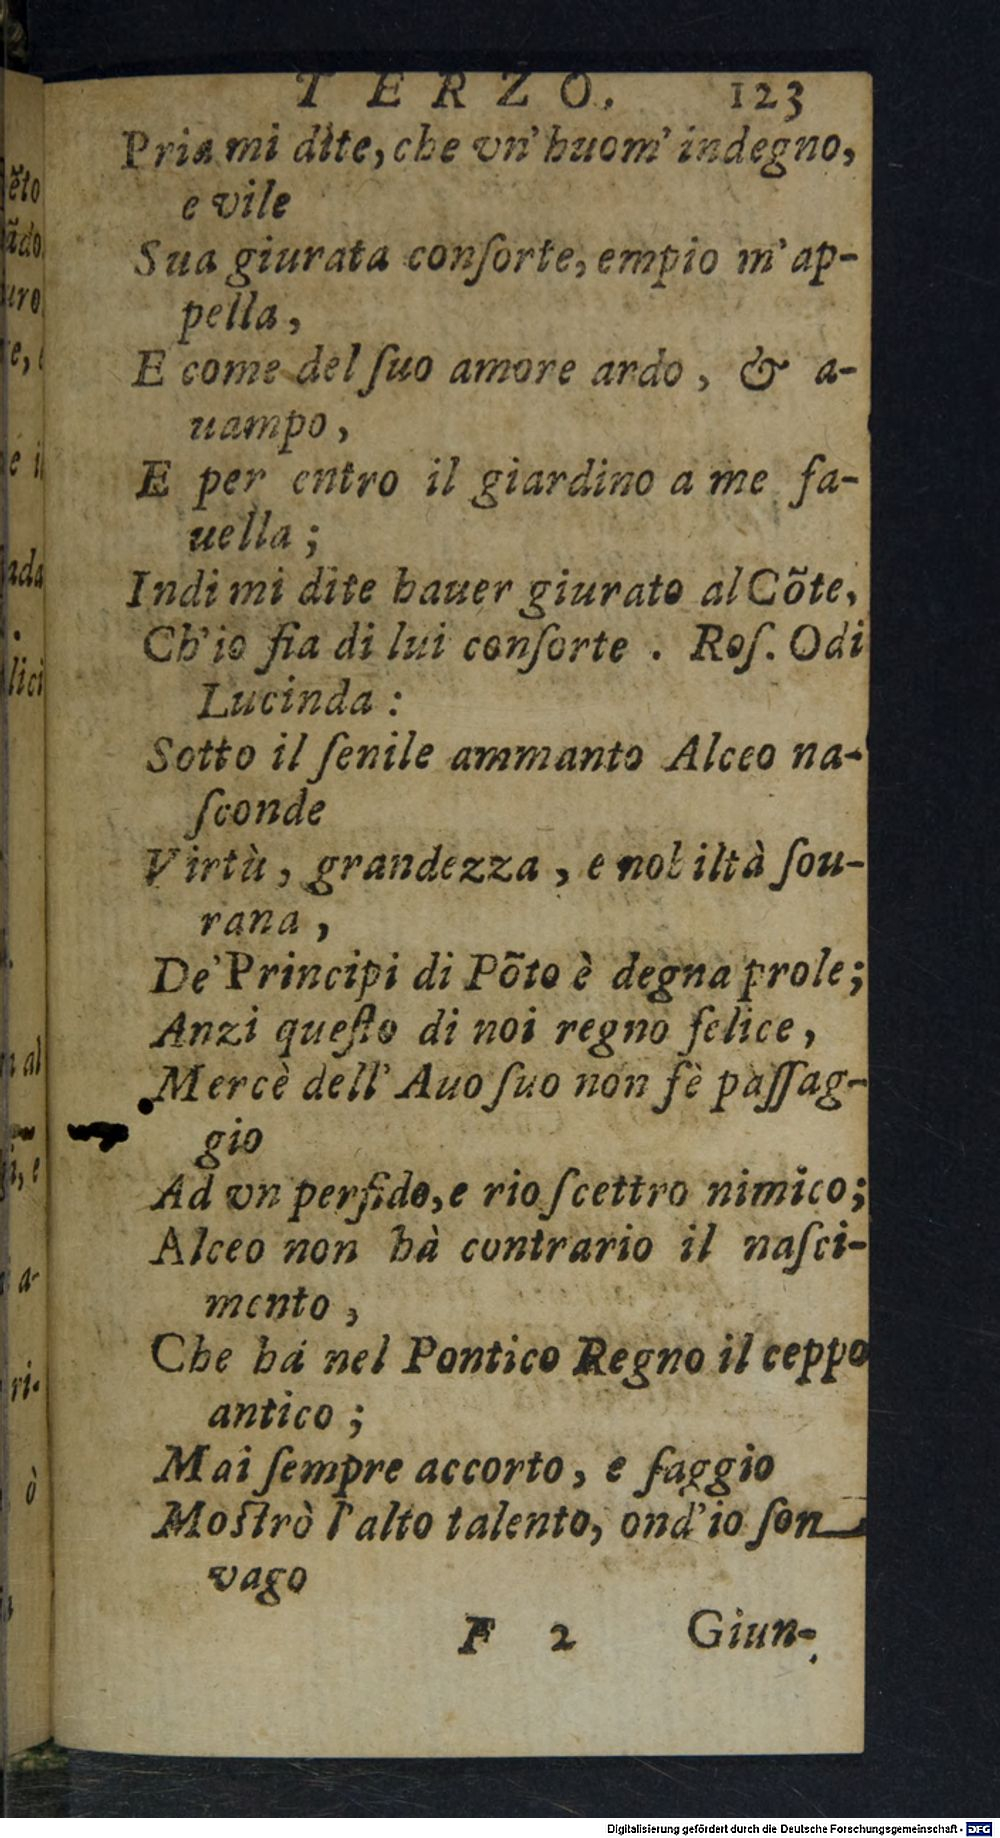 TERZO. 123
Pria mi dite, che vn' huom' indegno,
e vile
Sua giurata conſorte, empio m' ap-
pella,
E come del ſuo amore ardo, & a-
uampo,
E per entro il giardino a me fa-
uella;
Indi mi dite hauer giurato al Cõte,
Ch'io ſia di lui conſorte. Roſ. Odi
Lucinda:
Sotto il ſenile ammanto Alceo na-
ſconde
Virtù, grandezza, e nobiltà ſou-
rana,
De' Principi di Põto è degna prole;
Anzi queſto di noi regno felice,
Mercè dell' Auo ſuo non fè paſſag-
gio
Ad vn perfido, e rio ſcettro nimico;
Alceo non hà contrario il naſci-
mento,
Che há nel Pontico Regno il ceppo
antico;
Mai ſempre accorto, e ſaggio
Moſtrò l'alto talento, ond'io ſon
vago
F 2 Giun-
ẽto
ãdo
uro
re,
ada
lici
n al
i, e
a-
ri-
ò
Digitalisierung gefördert durch die Deutsche Forschungsgemeinschaft - DFG